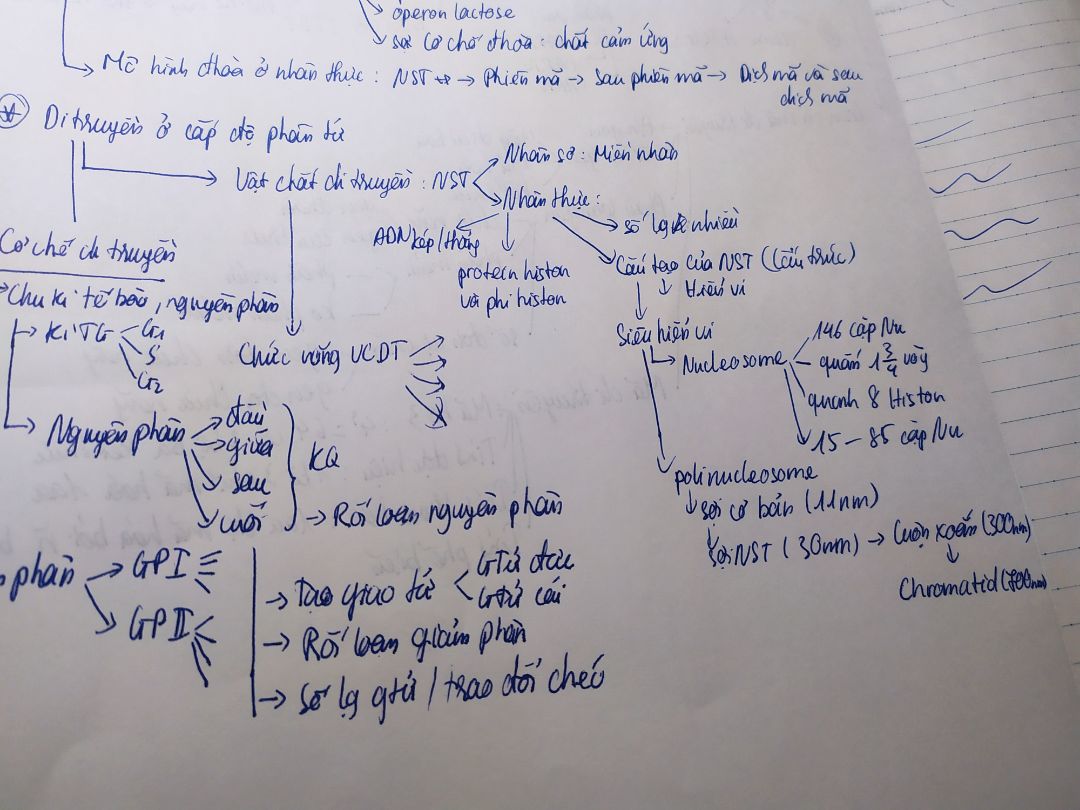 operon lactose
sơ cơ chế đhòa : chất cảm ứng
Mô hình đhòa ở nhân thực : NST → Phiên mã → sau phiên mã → Dịch mã và sau
dịch mã
Di truyền ở cấp độ phân tử
Vật chất di truyền : NST
Nhân sơ : Miền nhân
Nhân thực :
ADN kép / thẳng
protein histon
và phi histon
số lg nhiều
Cấu tạo của NST (Cấu trúc)
Hiển vi
Siêu hiển vi
Nucleosome
146 cặp Nu
quấn 1 3/4 vòng
quanh 8 Histon
15 – 85 cặp Nu
polinucleosome
sợi cơ bản (11nm)
sợi NST (30nm) → Cuộn xoắn (300nm)
Chromatid (700nm)
Chức năng VCDT
Cơ chế di truyền
Chu kì tế bào, nguyên phân
KìTG
G1
S
G2
Nguyên phân
đầu
giữa
sau
cuối
KQ
→ Rối loạn nguyên phân
phân
GPI
GPII
→ Tạo giao tử
GTử đực
Gtử cái
→ Rối loạn giảm phân
→ Số lg gtử / trao đổi chéo